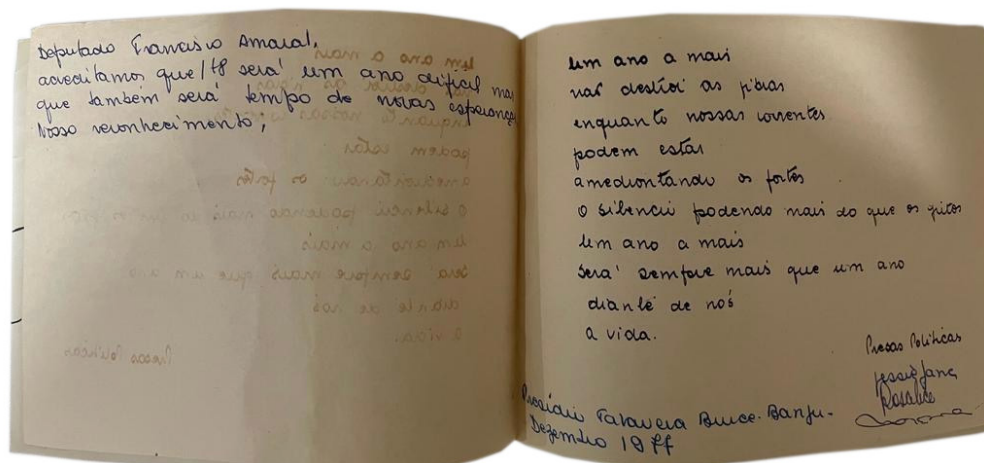 Deputado Francisco Amaral,
acreditamos que 78 será um ano difícil mas
que também será tempo de novas esperanças
Nosso reconhecimento,
um ano a mais
não destrói as
enquanto nossas correntes
podem estar
amedrontando os fortes
o silêncio podendo mais do que os gritos
um ano a mais
será sempre mais que um ano
diante de nós
a vida.
Presas Políticas
Jessie Jane
Rosalice
Presídio Talavera Bruce. Bangu.
Dezembro 1977